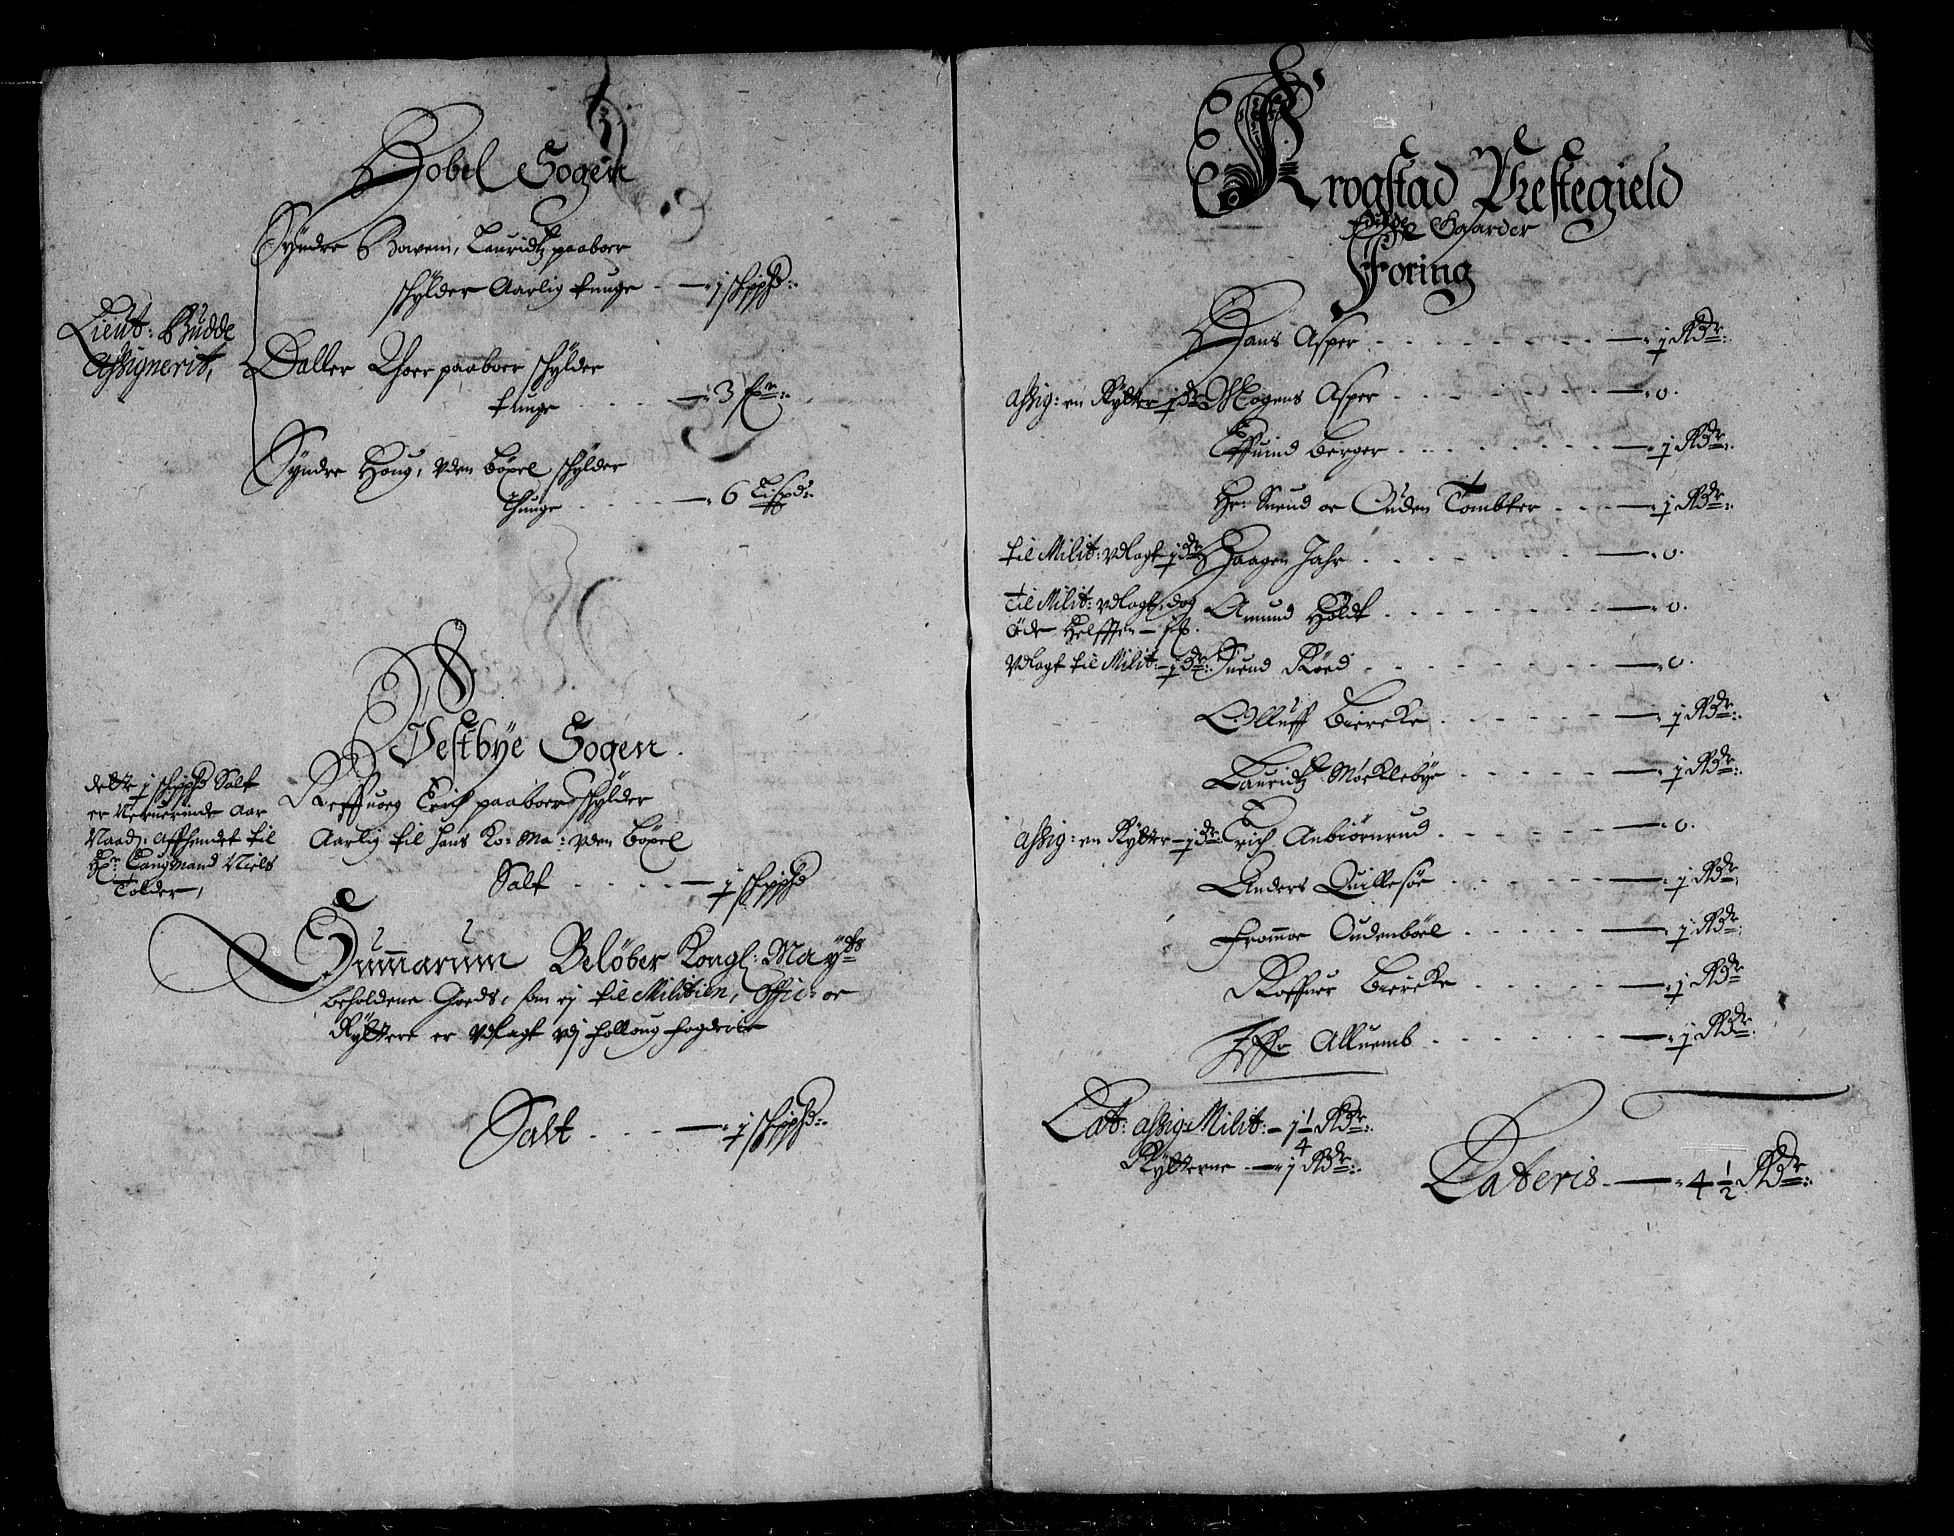 Hobel Sogen
Syndre Bawem, Lauridtz paaboer
schylder Aarlig tunge - 1 schippd:
Lieut: Budde
Assignerit,
Daller Thoer paaboer schylder
tunge - 3 fr:
Syndre Houg, vden böxel schylder
thunge - 6 Lispd:
Vestbye Sogen
dette 1 schippd Salt
er Neruerinde Aar
Naad: affhendet til
Hr: Laugmand Niels
Tolder,
Reffuoeg Erich paaboer schylder
Aarlig til hans Ko: Ma: vden böxel
Salt - 1 schippd
Summarum Belöber Kongl: Mayts
beholdene Goeds, som ej til Militien, Offic: oc
Rytterre er vdlagt vdj folloug fogderie
Salt - 1 schippd:
Krogstad Prestegield
fulde Gaarder
Foring
Hans Asper - 1 Rdr:
assig: en Rytter 1 dr Mogens Asper - 0.
Effuind Berger - 1 Rdr:
Hr: Suend oc Ouden Tombter - 1 Rdr:
til Milit: vdlagt 1 dr Haagen Jahr - 0.
til Milit: vdlagt, dog
öde Helfften - Amund Holdt - 0.
Vdlagt til Milit: - 1 dr: Suend Röed - 0.
Olluff Biercke - 1 Rdr:
Lauridtz Mocklebye - 1 Rdr:
assig: en Rytter - 1 dr Erich Anbiörnrud - 0.
Anders Quillesöe - 1 Rdr
Frommoe Oudenböel - 1 Rdr:
Reffuer Biercke - 1 Rdr
Iffr Alluemb - 1 Rdr:
Lat: assig: Milit: - 1 1/4 Rdr:
Rytterne - 1 Rdr:
Lateris - 4 1/2 Rdr: